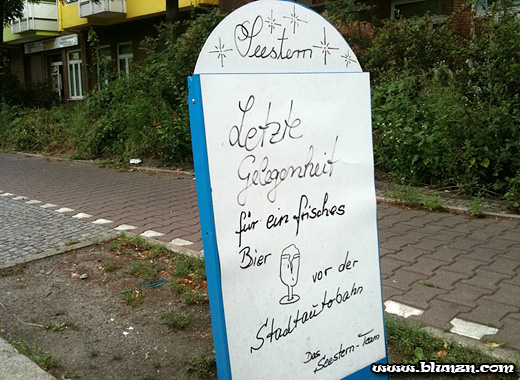 Seestern
Letzte
Gelegenheit
für ein frisches
Bier
vor der
Stadtautobahn
Das Seestern-Team
www.blunzn.com